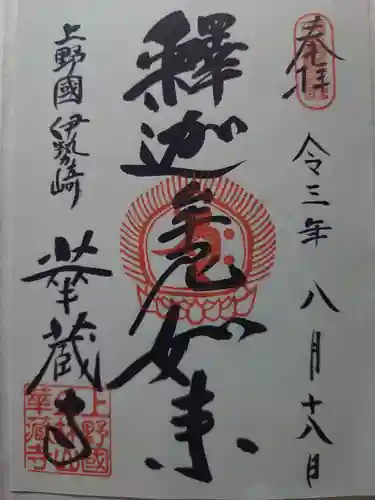 奉拝
令三年八月十八日
釋迦牟尼如来
上野國伊勢崎
華蔵寺
上野國
華蔵寺